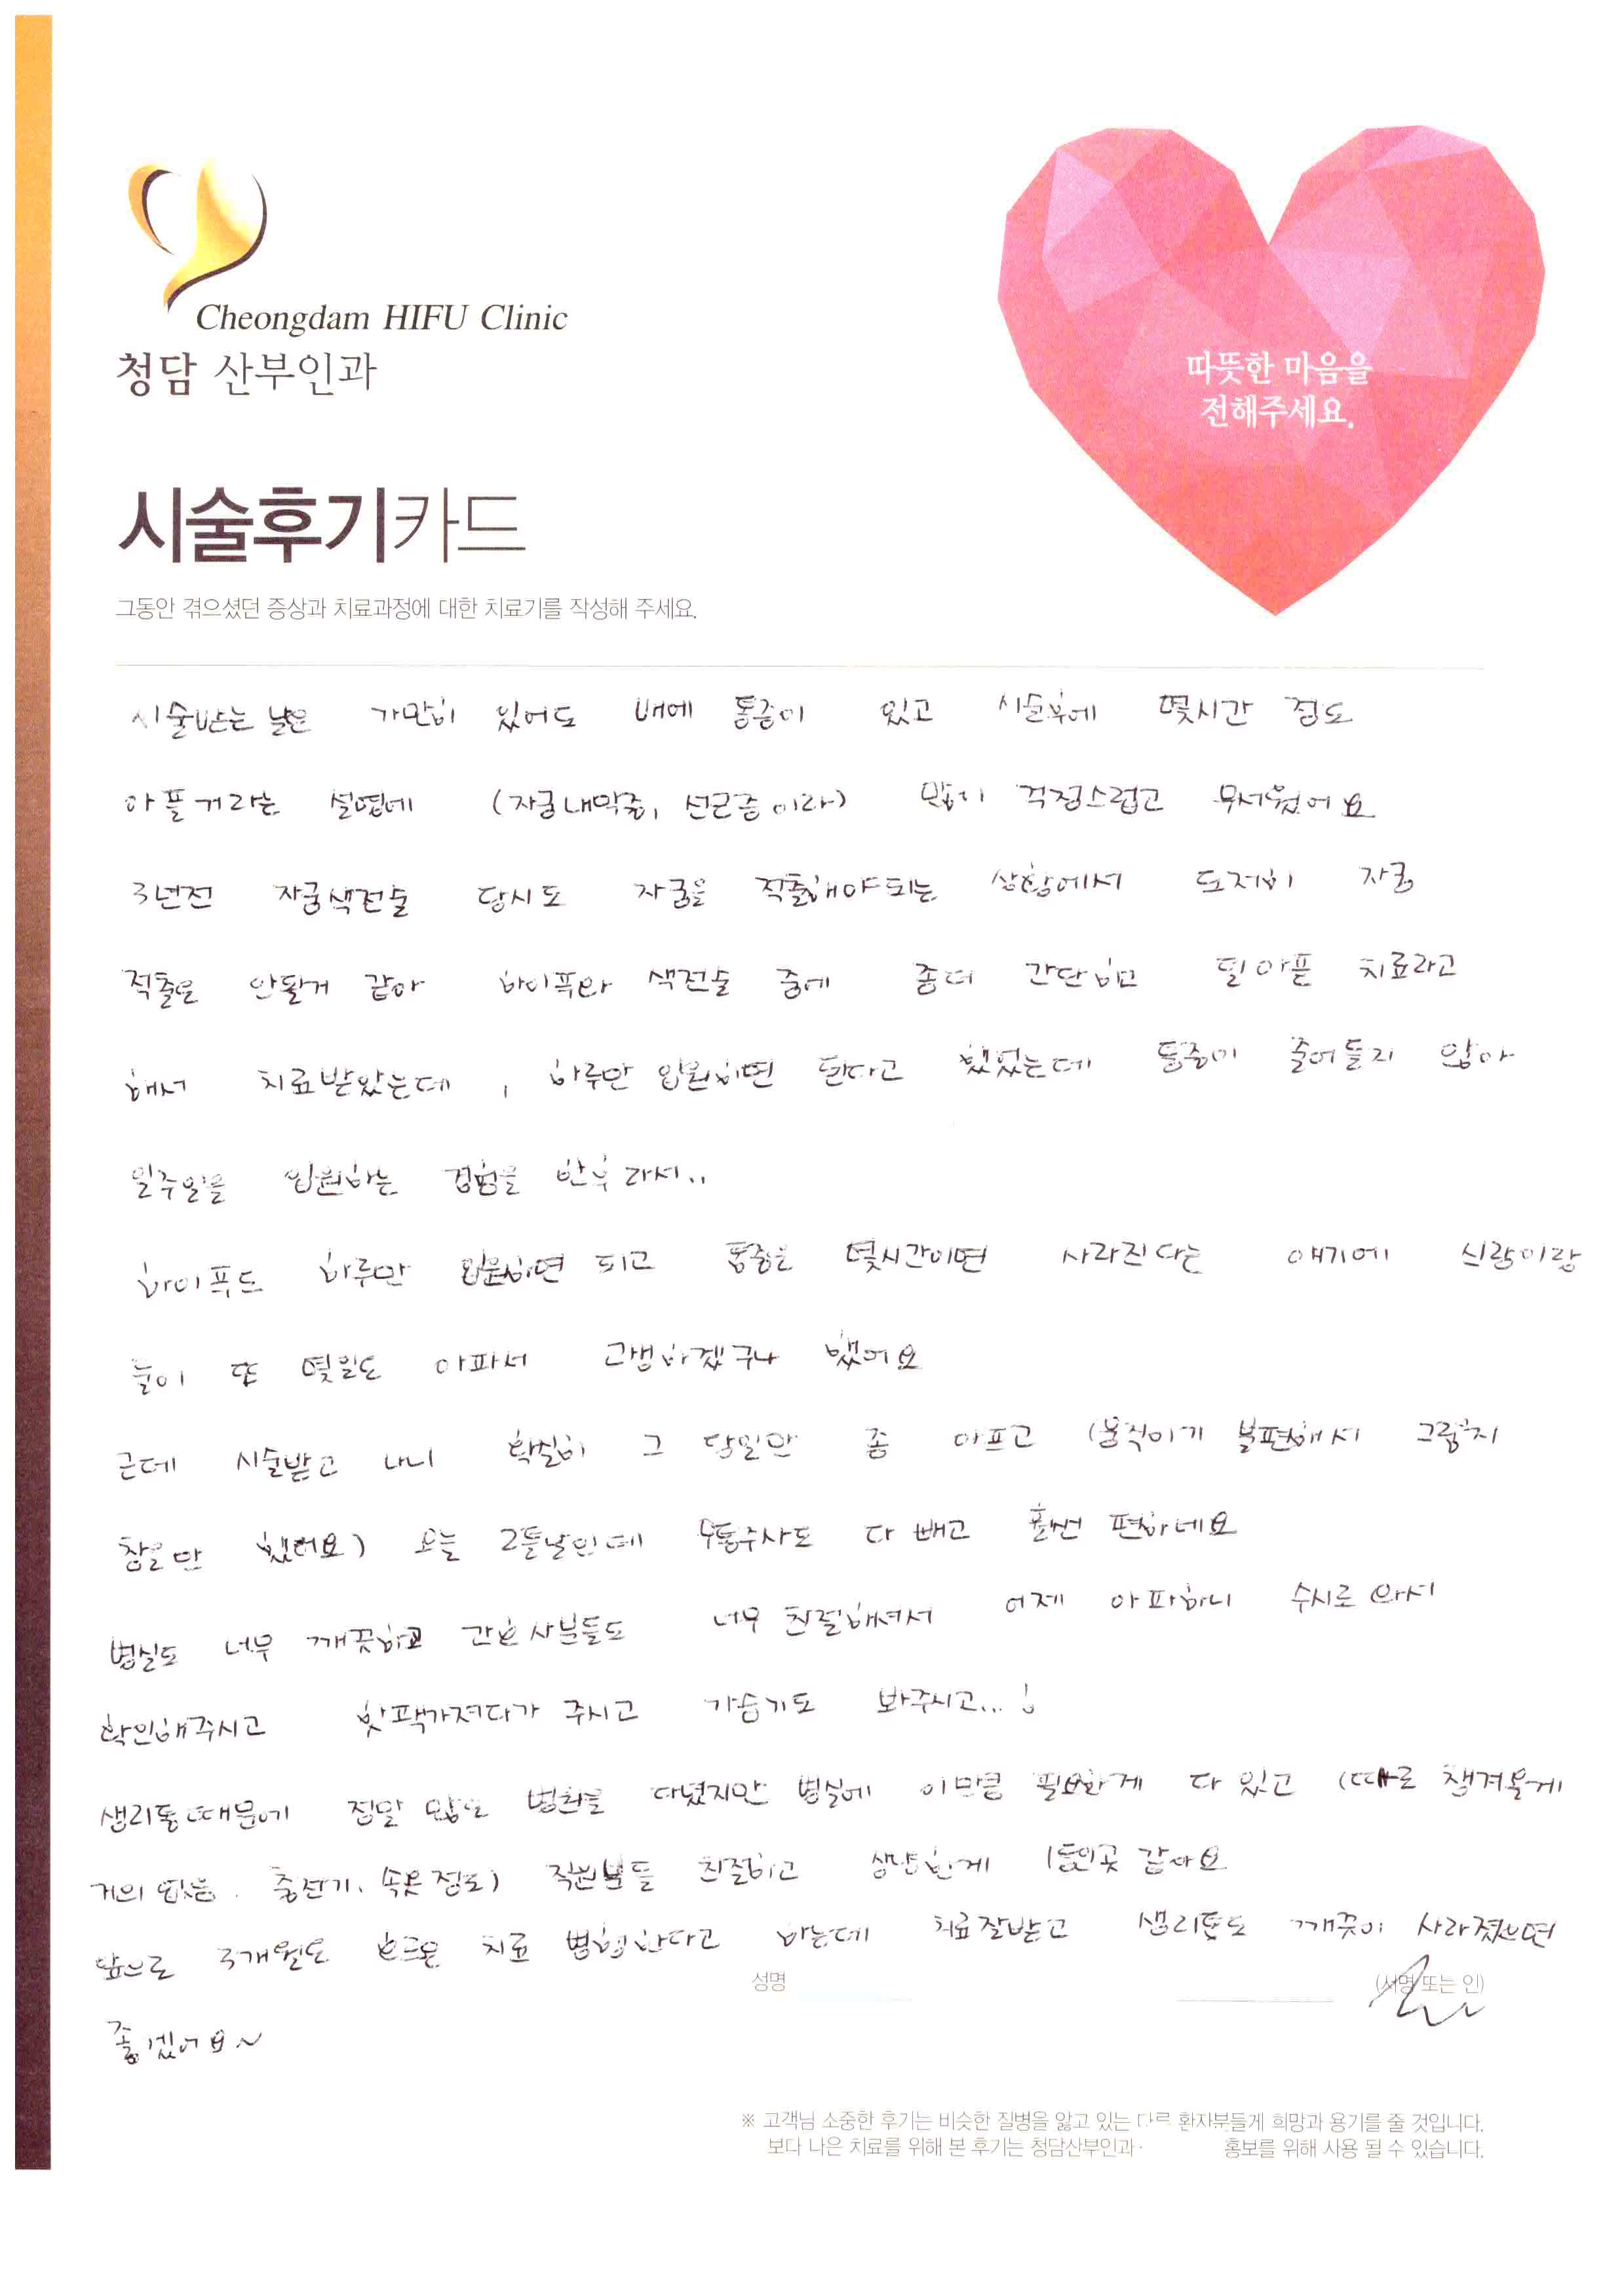 Cheongdam HIFU Clinic
청담 산부인과
따뜻한 마음을
전해주세요.
시술후기카드
그동안 겪으셨던 증상과 치료과정에 대한 치료기를 작성해 주세요.
시술받는 날은 가만히 있어도 배에 통증이 있고 시술후에 몇시간 정도
아플거라는 설명에 (자궁내막증, 선근증이라) 많이 걱정스럽고 무서웠어요
3년전 자궁색전술 당시도 자궁을 적출해야되는 상황에서 도저히 자궁
적출은 안될거 같아 하이푸와 색전술 중에 좀더 간단하고 덜아픈 치료라고
해서 치료받았는데, 하루만 입원하면 된다고 했었는데 통증이 줄어들지 않아
일주일을 입원하는 경험을 한후라서..
하이푸도 하루만 입원하면 되고 통증은 몇시간이면 사라진다는 얘기에 신랑이랑
둘이 또 몇일도 아파서 고생하겠구나 했어요
근데 시술받고 나니 확실히 그 당일만 좀 아프고 (움직이기 불편해서 그렇지
참을만 했어요) 오늘 2틀날인데 무통주사도 다 빼고 훨씬 편하네요
병실도 너무 깨끗하고 간호사분들도 너무 친절해셔서 어제 아파하니 수시로 와서
확인해주시고 핫팩가져다가 주시고 가습기도 봐주시고...!
생리통때문에 정말 많은 병원을 다녔지만 병실에 이만큼 필요한게 다 있고 (따로 챙겨올게
거의 없음. 충전기, 속옷 정도) 직원분들 친절하고 상냥한게 1등인곳 같아요
앞으로 3개월도 호르몬 치료 병행한다고 하는데 치료잘받고 생리통도 깨끗이 사라졌으면
성명 (서명 또는 인)
좋겠어요~
※ 고객님 소중한 후기는 비슷한 질병을 앓고 있는 다른 환자분들게 희망과 용기를 줄 것입니다.
보다 나은 치료를 위해 본 후기는 청담산부인과· 홍보를 위해 사용 될 수 있습니다.